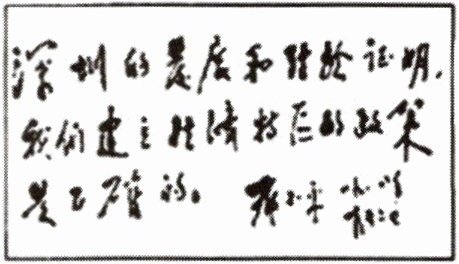 深圳的发展和经验证明,
我们建立经济特区的政策
是正确的。 邓小平